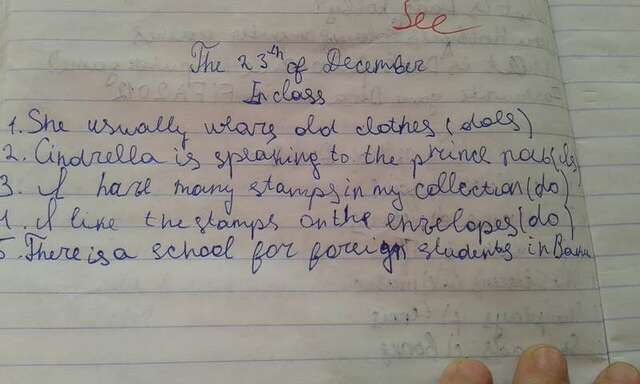 See
The 23th of December
In class
1. She usually wears old clothes (does)
2. Cindrella is speaking to the prince now (is)
3. I have many stamps in my collection (do)
4. I like the stamps on the envelopes (do)
5. There is a school for foreign students in Baku